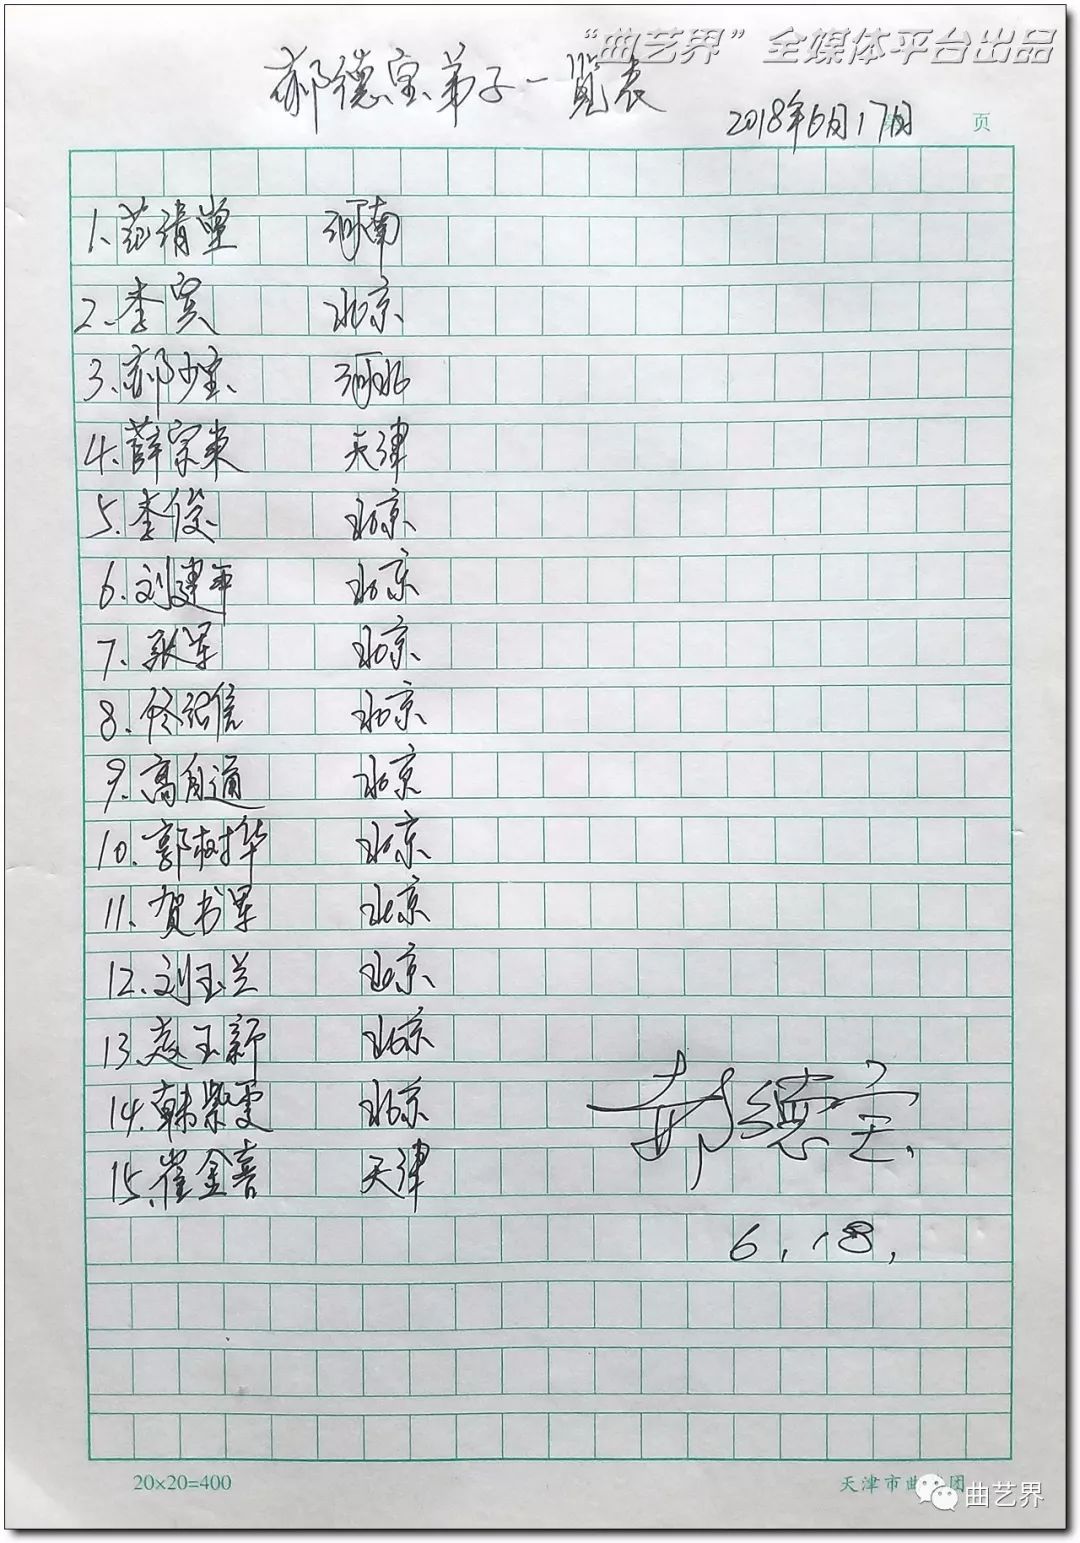 “曲艺界”全媒体平台出品
郝德宝弟子一览表
2018年6月17日
页
1、范清堂 河南
2、李宾 北京
3、郝少宝 河北
4、薛宗来 天津
5、李俊 北京
6、刘建平 北京
7、张军 北京
8、佟 信 北京
9、高自通 北京
10、郭树华 北京
11、贺书军 北京
12、刘玉兰 北京
13、赵玉新 北京
14、韩紫雯 北京
15、崔金喜 天津
郝德宝
6.18.
20×20=400
天津市曲 团
曲艺界